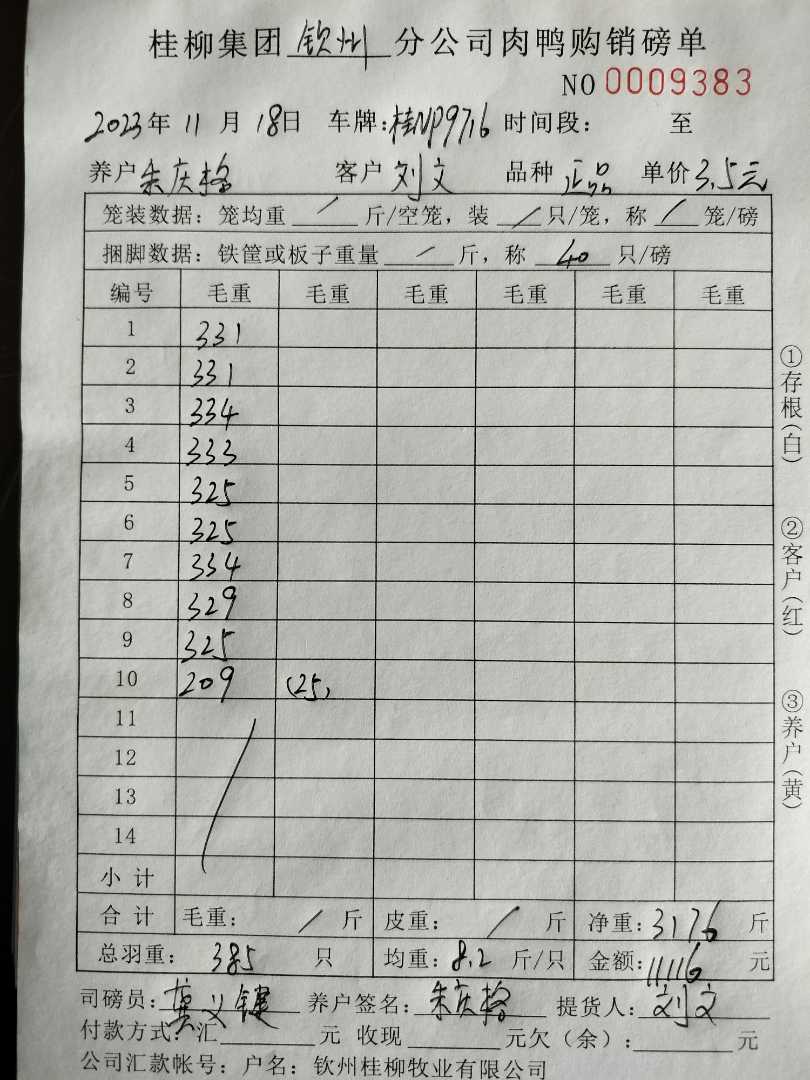 桂柳集团 钦州 分公司肉鸭购销磅单
NO 0009383
2023年 11 月 18日 车牌:桂NP9716 时间段: 至
养户 朱庆格 客户 刘文 品种 正品 单价 3.5元
笼装数据:笼均重 / 斤/空笼,装 / 只/笼,称 / 笼/磅
捆脚数据:铁筐或板子重量 / 斤,称 40 只/磅
编号 毛重 毛重 毛重 毛重 毛重 毛重
1 331
2 331
3 334
4 333
5 325
6 325
7 334
8 329
9 325
10 209 (25)
11
12
13
14
小计
合计 毛重: / 斤 皮重: / 斤 净重:3176 斤
总羽重: 385 只 均重:8.2 斤/只 金额:11116 元
司磅员: 义键 养户签名:朱庆格 提货人:刘文
付款方式:汇 元 收现 元欠(余): 元
公司汇款帐号:户名:钦州桂柳牧业有限公司
①存根(白)
②客户(红)
③养户(黄)